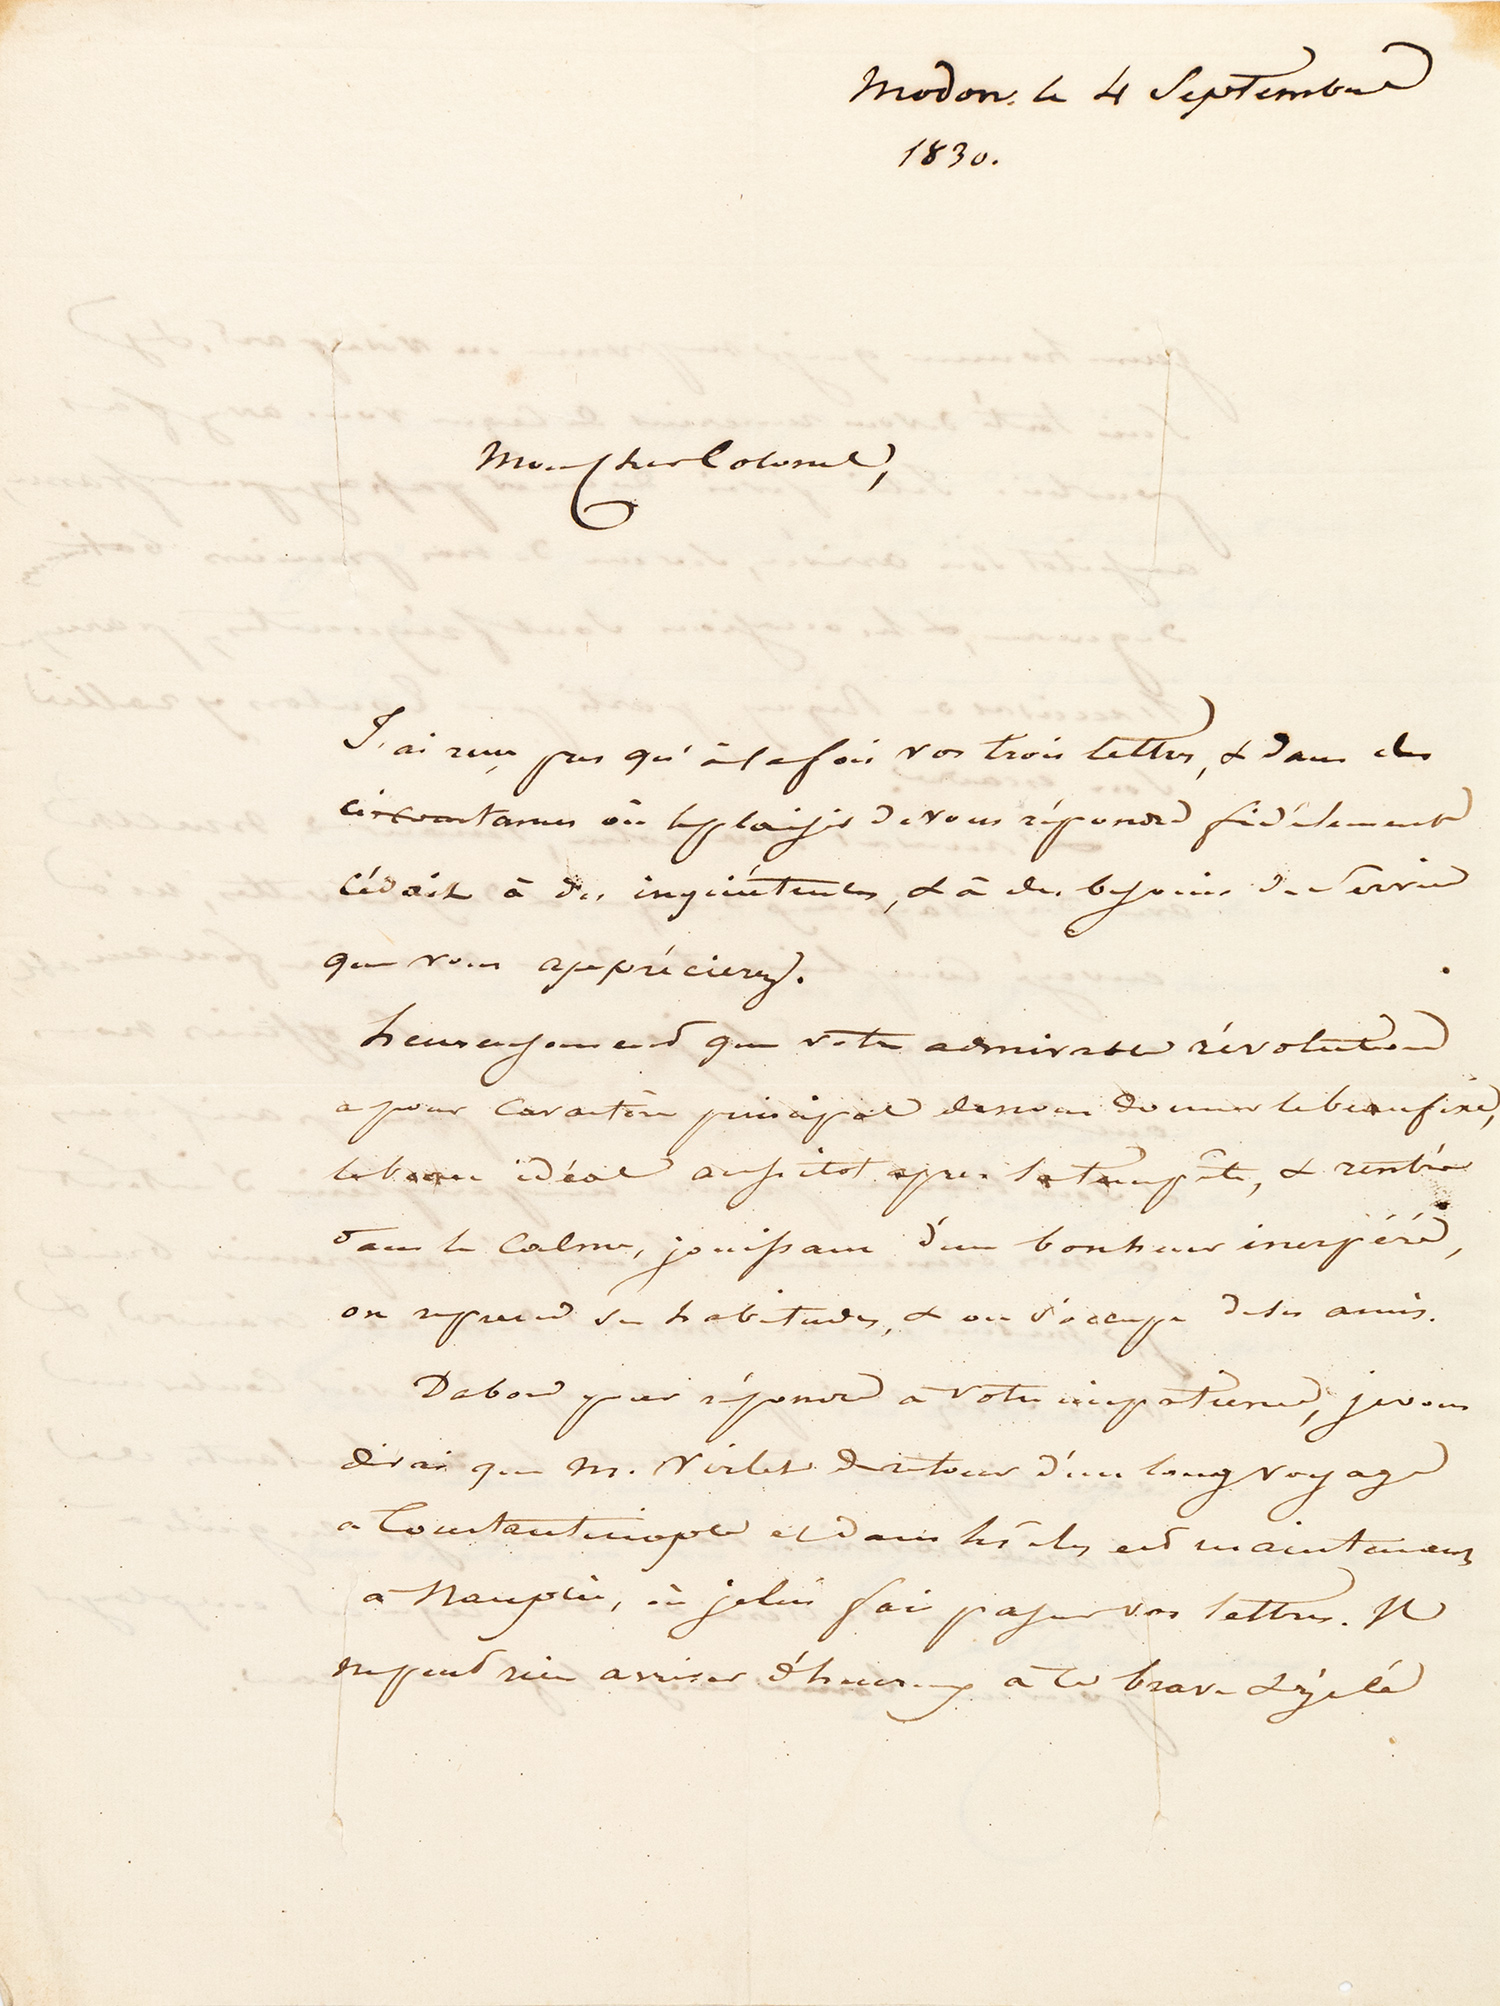 Modon, le 4 Septembre
1830.
Mon cher Colonel,
J'ai reçu presqu'à la fois vos trois lettres, & dans des
circonstances où le plaisir de vous répondre fidélement
cédait à des inquiétudes, & à des besoins de Service
que vous apprécierez.
heureusement que notre admirable révolution
a pour caractère principal de nous donner le beau fixe,
le beau idéal aussitot après la tempête, & rentré
dans le calme, jouissant d'un bonheur inespéré,
on reprend ses habitudes, & on s'occupe de ses amis.
Dabord pour répondre à votre impatience, je vous
dirai que M. Virlet de retour d'un long voyage
a Constantinople et dans les îles est maintenant
a Nauplie, où je lui fais passer vos lettres. Il
ne peut rien arriver d'heureux à ce brave & zélé